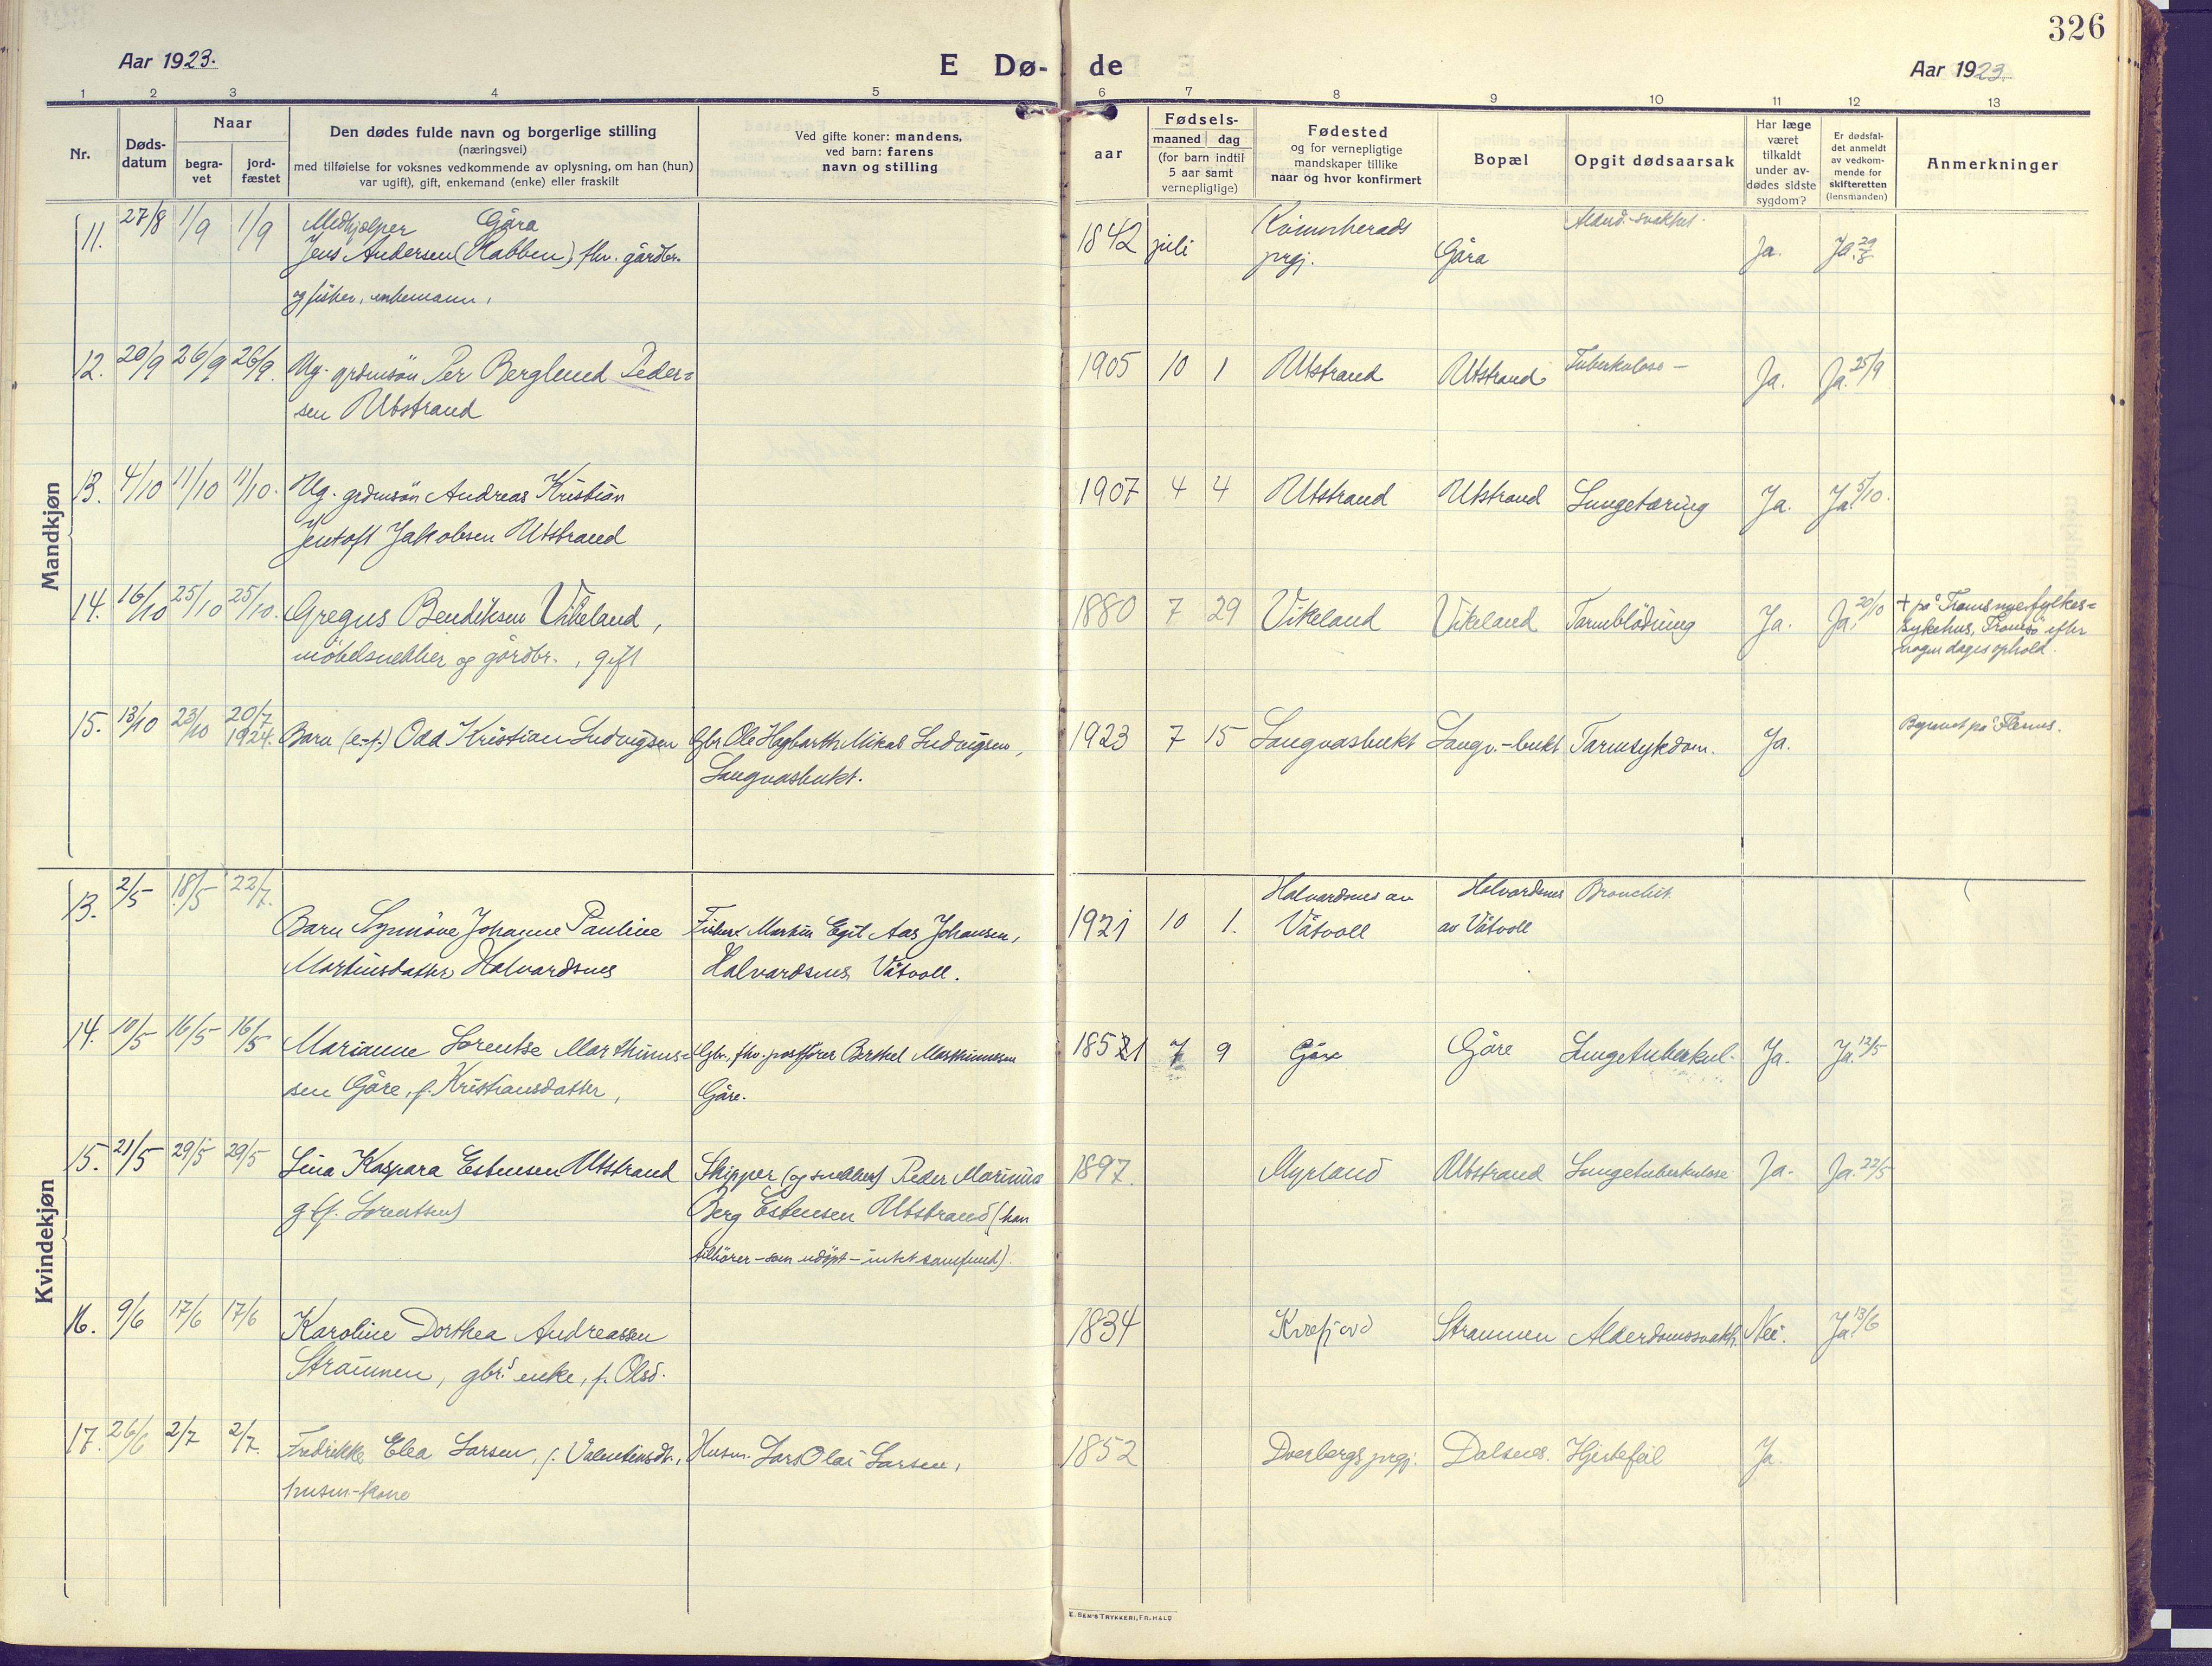 326
Aar 1923.
E Dø-de
Aar 1923.
1 2 3 4 5 6 7 8 9 10 11 12 13
Nr.
Døds-
datum
Naar
begra-
vet
jord-
fæstet
Den dødes fulde navn og borgerlige stilling
(næringsvei)
med tilføielse for voksnes vedkommende av oplysning, om han (hun)
var ugift), gift, enkemand (enke) eller fraskilt
Ved gifte koner: mandens,
ved barn: farens
navn og stilling
aar
Fødsels-
maaned dag
(for barn indtil
5 aar samt
vernepligtige)
Fødested
og for vernepligtige
mandskaper tillike
naar og hvor konfirmert
Bopæl
Opgit dødsaarsak
Har læge
været
tilkaldt
under av-
dødes sidste
sygdom?
Er dødsfal-
det anmeldt
av vedkom-
mende for
skifteretten
(lensmanden)
Anmerkninger
Mandkjøn
11. 27/8 1/9 1/9 Medhjælper Gåra
Jens Andersen (Rabben) fhv. gårdbr.
og fisker, enkemann,
1842 juli prgj. Gåra Ja. Ja. 29/8
12. 20/9 26/9 26/9. Ug. grdmsøn Per Berglund Peder=
sen Utstrand
1905 10 1 Utstrand Utstrand Tuberkulose — Ja. Ja. 25/9
13. 4/10 11/10 11/10. Ug. grdmsøn Andreas Kristian
Jentoft Jakobsen Utstrand
1907 4 4 Utstrand Utstrand Lungetæring Ja. Ja. 5/10.
14. 16/10 25/10 25/10. Gregus Bendiksen Vikeland,
møbelsnekker og gårdbr., gift
1880 7 29 Vikeland Vikeland Tarmblødning Ja. Ja. 20/10
+ på Troms nye fylkes=
sykehus, Tromsø efter
nogen dages ophold.
15. 13/10 23/10 20/7 1924. Barn (e.f.) Odd Kristian Ludvigsen Gbr Ole Hagbarth Mikal Ludvigsen,
Langvasbukt.
1923 7 15 Langvasbukt Langv.-bukt Tarmsykdom. Ja. Begravet på Flesnes.
Kvindekjøn
13. 2/5 18/5 22/7. Barn Synnöve Johanne Pauline
Martinsdatter Halvardsnes
Fisker Martin Egil Aas Johansen,
Halvardsnes Våtvoll.
1921 10 1. Halvardsnes av
Våtvoll
Halvardsnes
av Våtvoll
Bronchit.
14. 10/5 16/5 16/5 Marianne Lorentse Marthinus=
sen Gåre, f. Kristiansdatter,
Gbr., fhv. postfører Berthel Marthinussen
Gåre.
1851 7 9 Gåre Gåre Lungetuberkul. Ja. Ja. 12/5
15. 21/5 29/5 29/5 Lina Kaspara Estensen Utstrand
g (f. Lorentsen)
Skipper (og snekker) Peder Marinius
Berg Estensen Utstrand (han
tilhører — som udöpt — intet samfund).
1897. Myrland Utstrand Lungetuberkulose Ja. Ja. 22/5
16. 9/6 17/6 17/6 Karoline Dorthea Andreassen
Straumen, gbrs enke, f. Olsd.
1834 Kvæfjord Straumen Alderdomssvakh. Nei. Ja. 13/6
17. 26/6 2/7 2/7. Fredrikke Elea Larsen, f. Valentinsdt.,
husm.-kone
Husm. Lars Olai Larsen,
1852 Dverbergs prgj. Dalsnes. Hjertefeil Ja.
E. SEM'S TRYKKERI, FR.HALD